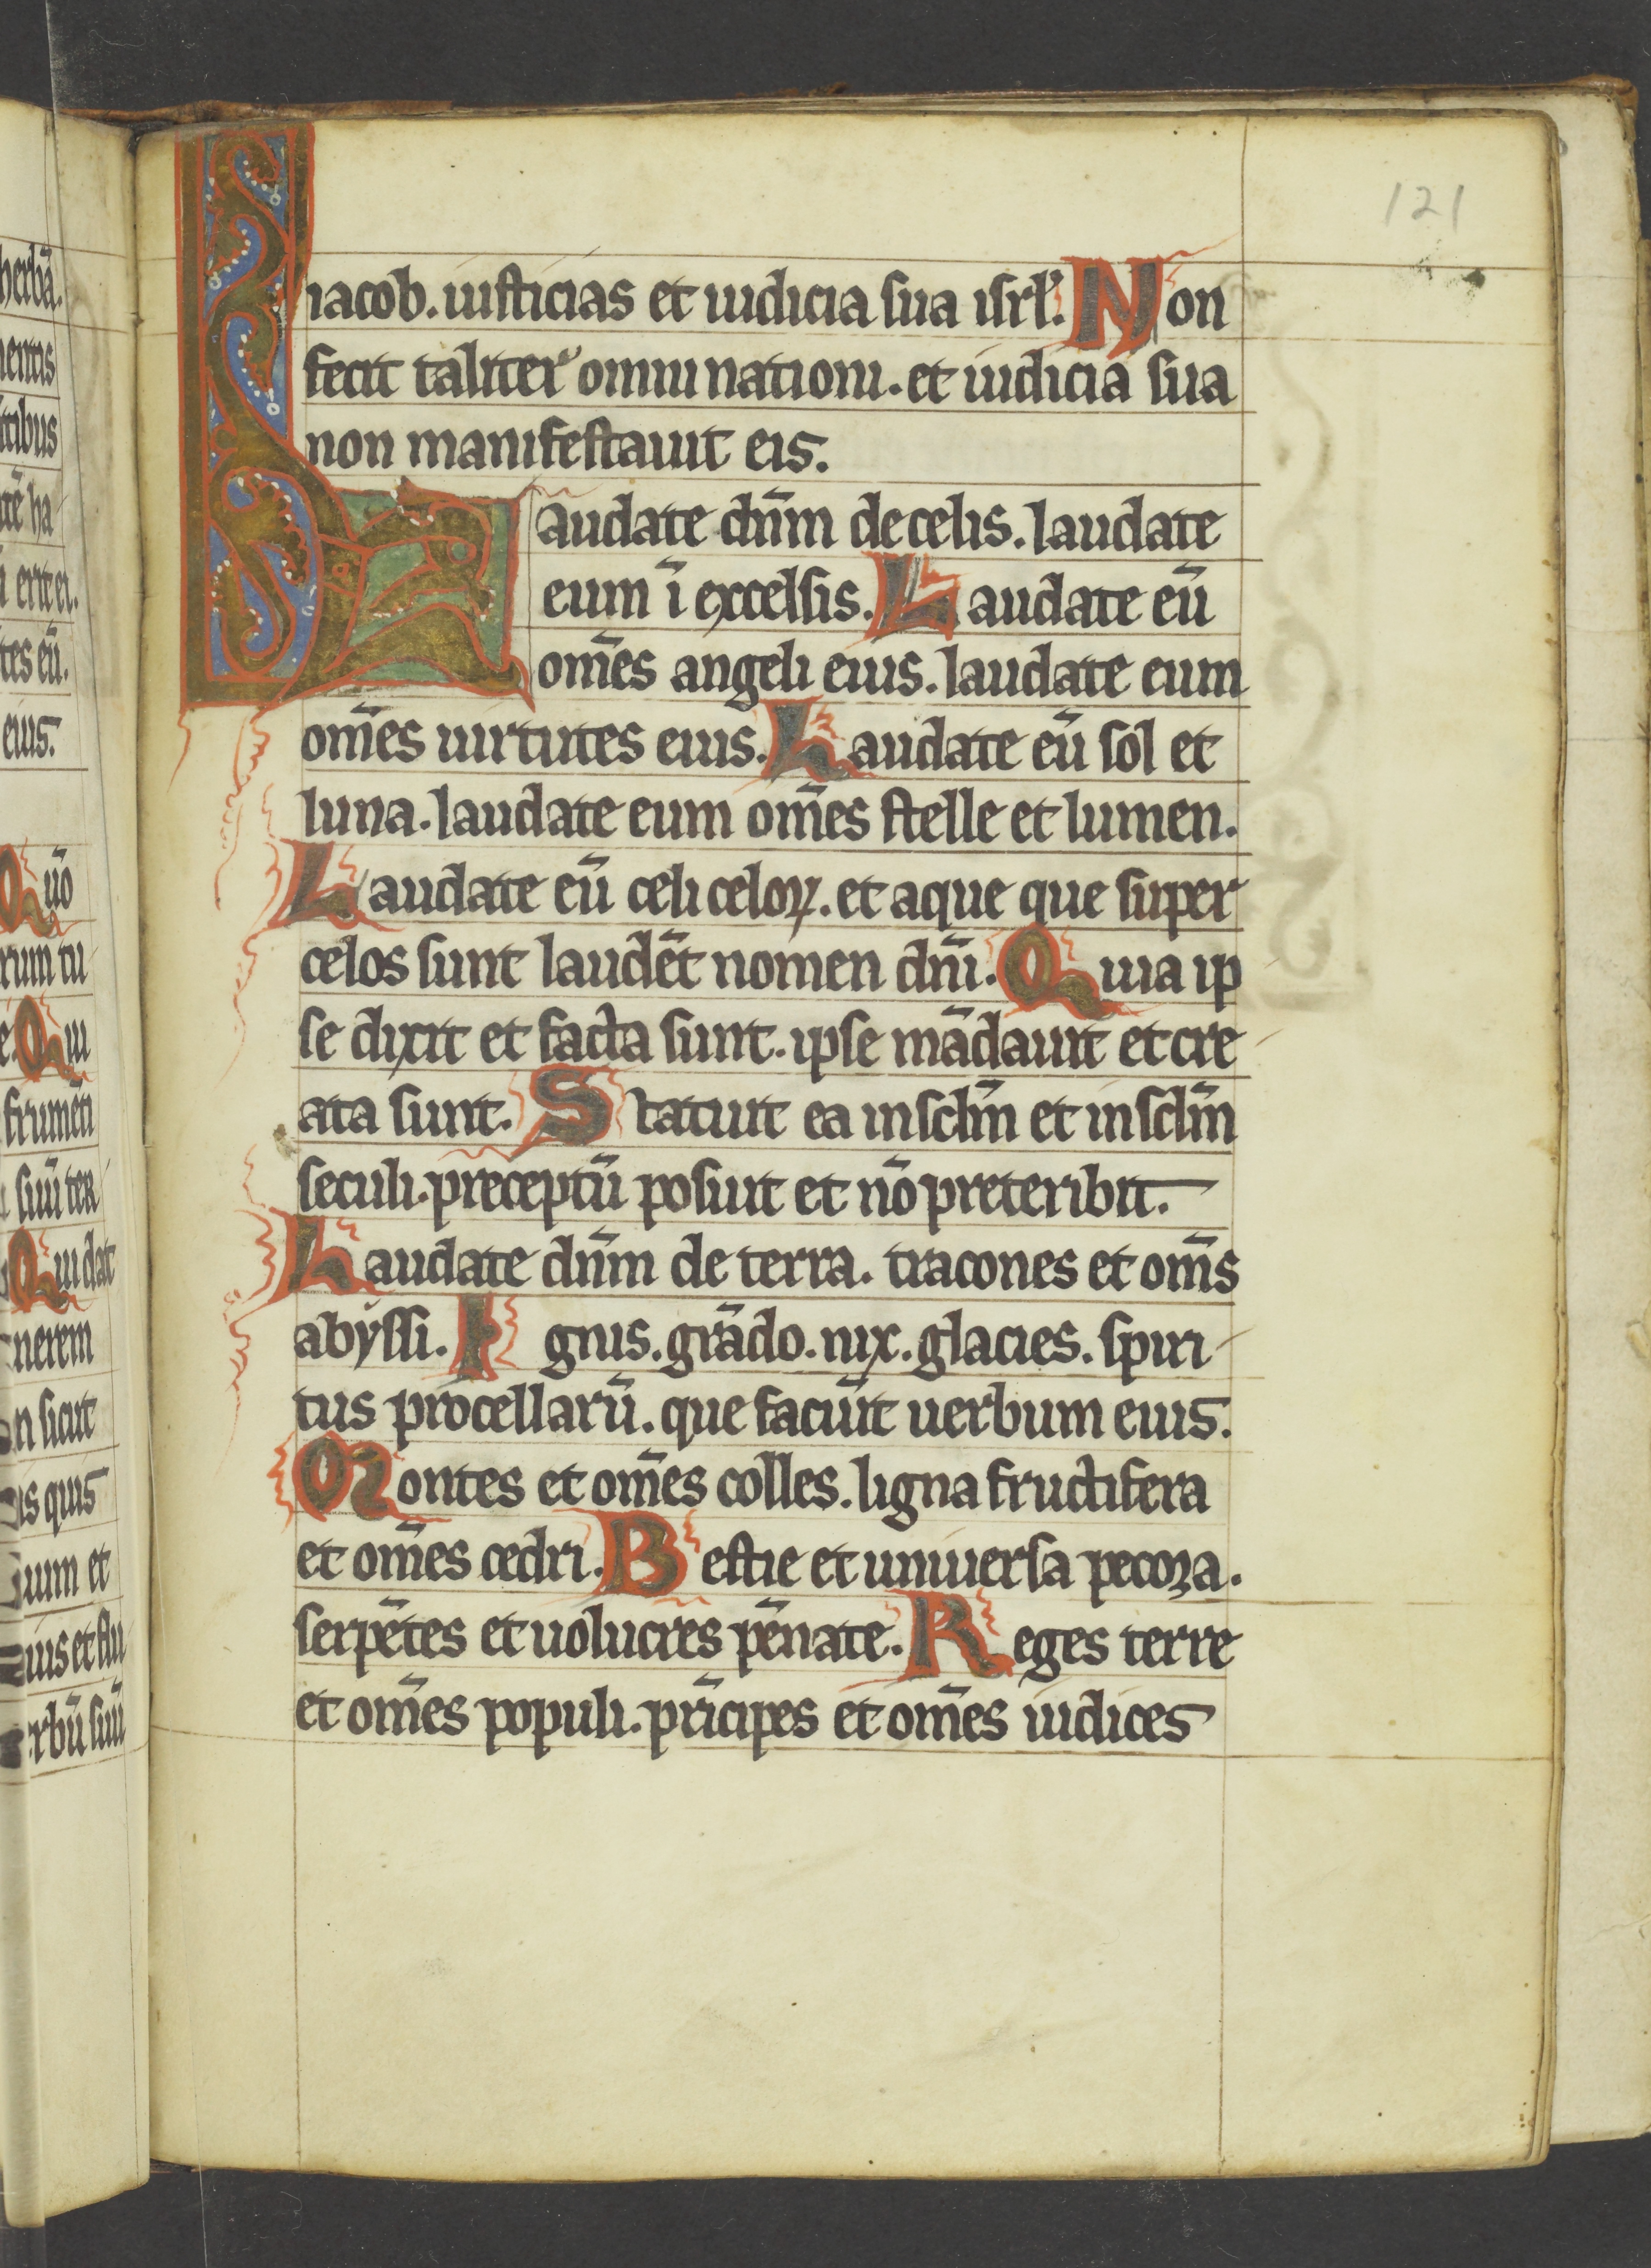 121
iacob. iusticias et iudicia sua isrł. Non
fecit taliter omni nationi. et iudicia sua
non manifestauit eis.
Laudate dn̄m de celis. laudate
eum ī excelsis. Laudate eū
om̄es angeli eius. laudate eum
om̄es uirtutes eius. Laudate eū sol et
luna. laudate eum om̄es stelle et lumen.
Laudate eū celi celoꝝ. et aque que super
celos sunt laudēt nomen dn̄i. Quia ip
se dixit et facta sunt. ipse mādauit et cre
ata sunt. Statuit ea in sclm̄ et in sclm̄
seculi. preceptū posuit et nō preteribit.
Laudate dn̄m de terra. tracones et om̄s
abyssi. Ignis. grādo. nix. glacies. spiri
tus procellarū. que faciūt uerbum eius.
Montes et om̄es colles. ligna fructifera
et om̄es cedri. Bestie et uniuersa pecora.
serpētes et uolucres pēnate. Reges terre
et om̄es populi. prīcipes et om̄es iudices
herbā.
mentis
ha
erit ei.
eū.
eius.
Quō
rum tu
Qui
frumēti
suū ter
Qui dat
nerem
sicut
quis
et
et flu
suū